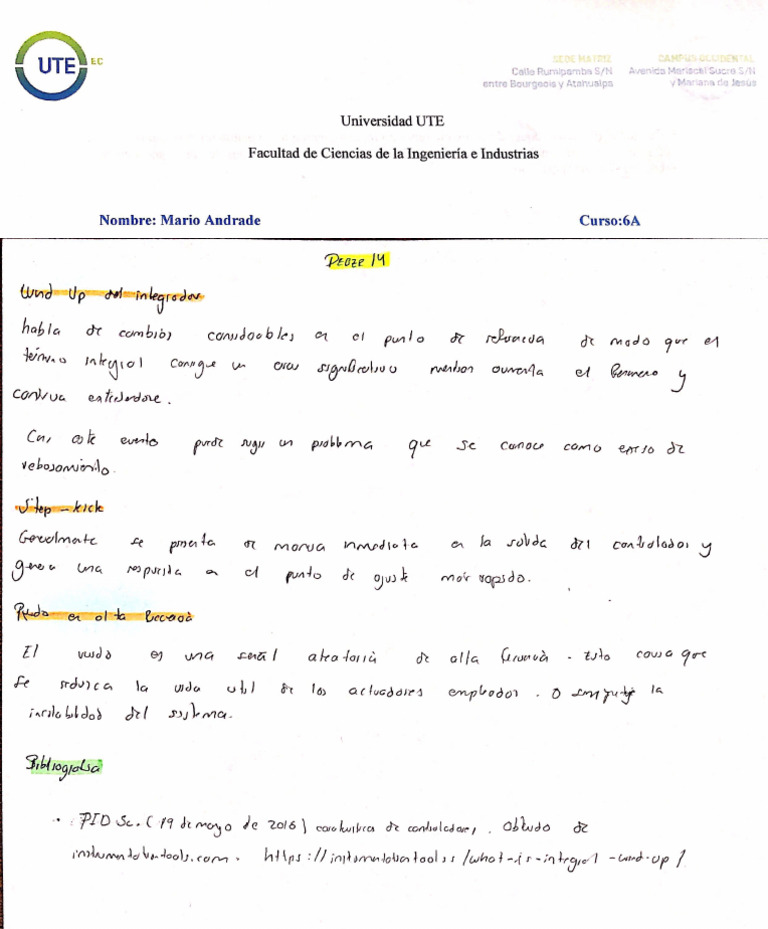 UTE EC
SEDE MATRIZ CAMPUS OCCIDENTAL
Calle Rumipamba S/N Avenida Mariscal Sucre S/N
entre Bourgeois y Atahualpa y Mariana de Jesús
Universidad UTE
Facultad de Ciencias de la Ingeniería e Industrias
Nombre: Mario Andrade Curso:6A
14
Wind Up del integrador
habla de cambios en el punto de de modo que el
término integral un error significativo mientras aumenta el y
continua
Con este evento puede un problema que se conoce como de
rebosamiento.
Step - kick
Generalmente se presenta de manera inmediata en la salida del controlador y
genera una respuesta en el punto de ajuste más rapido.
Ruido en alta
El ruido es una señal aleatoria de alta frecuencia. Esto causa que
se reduzca la vida util de los actuadores empleados. O la
del sistema.
Bibliografia
• PID Sc. (19 de mayo de 2016) de controladores. Obtenido de